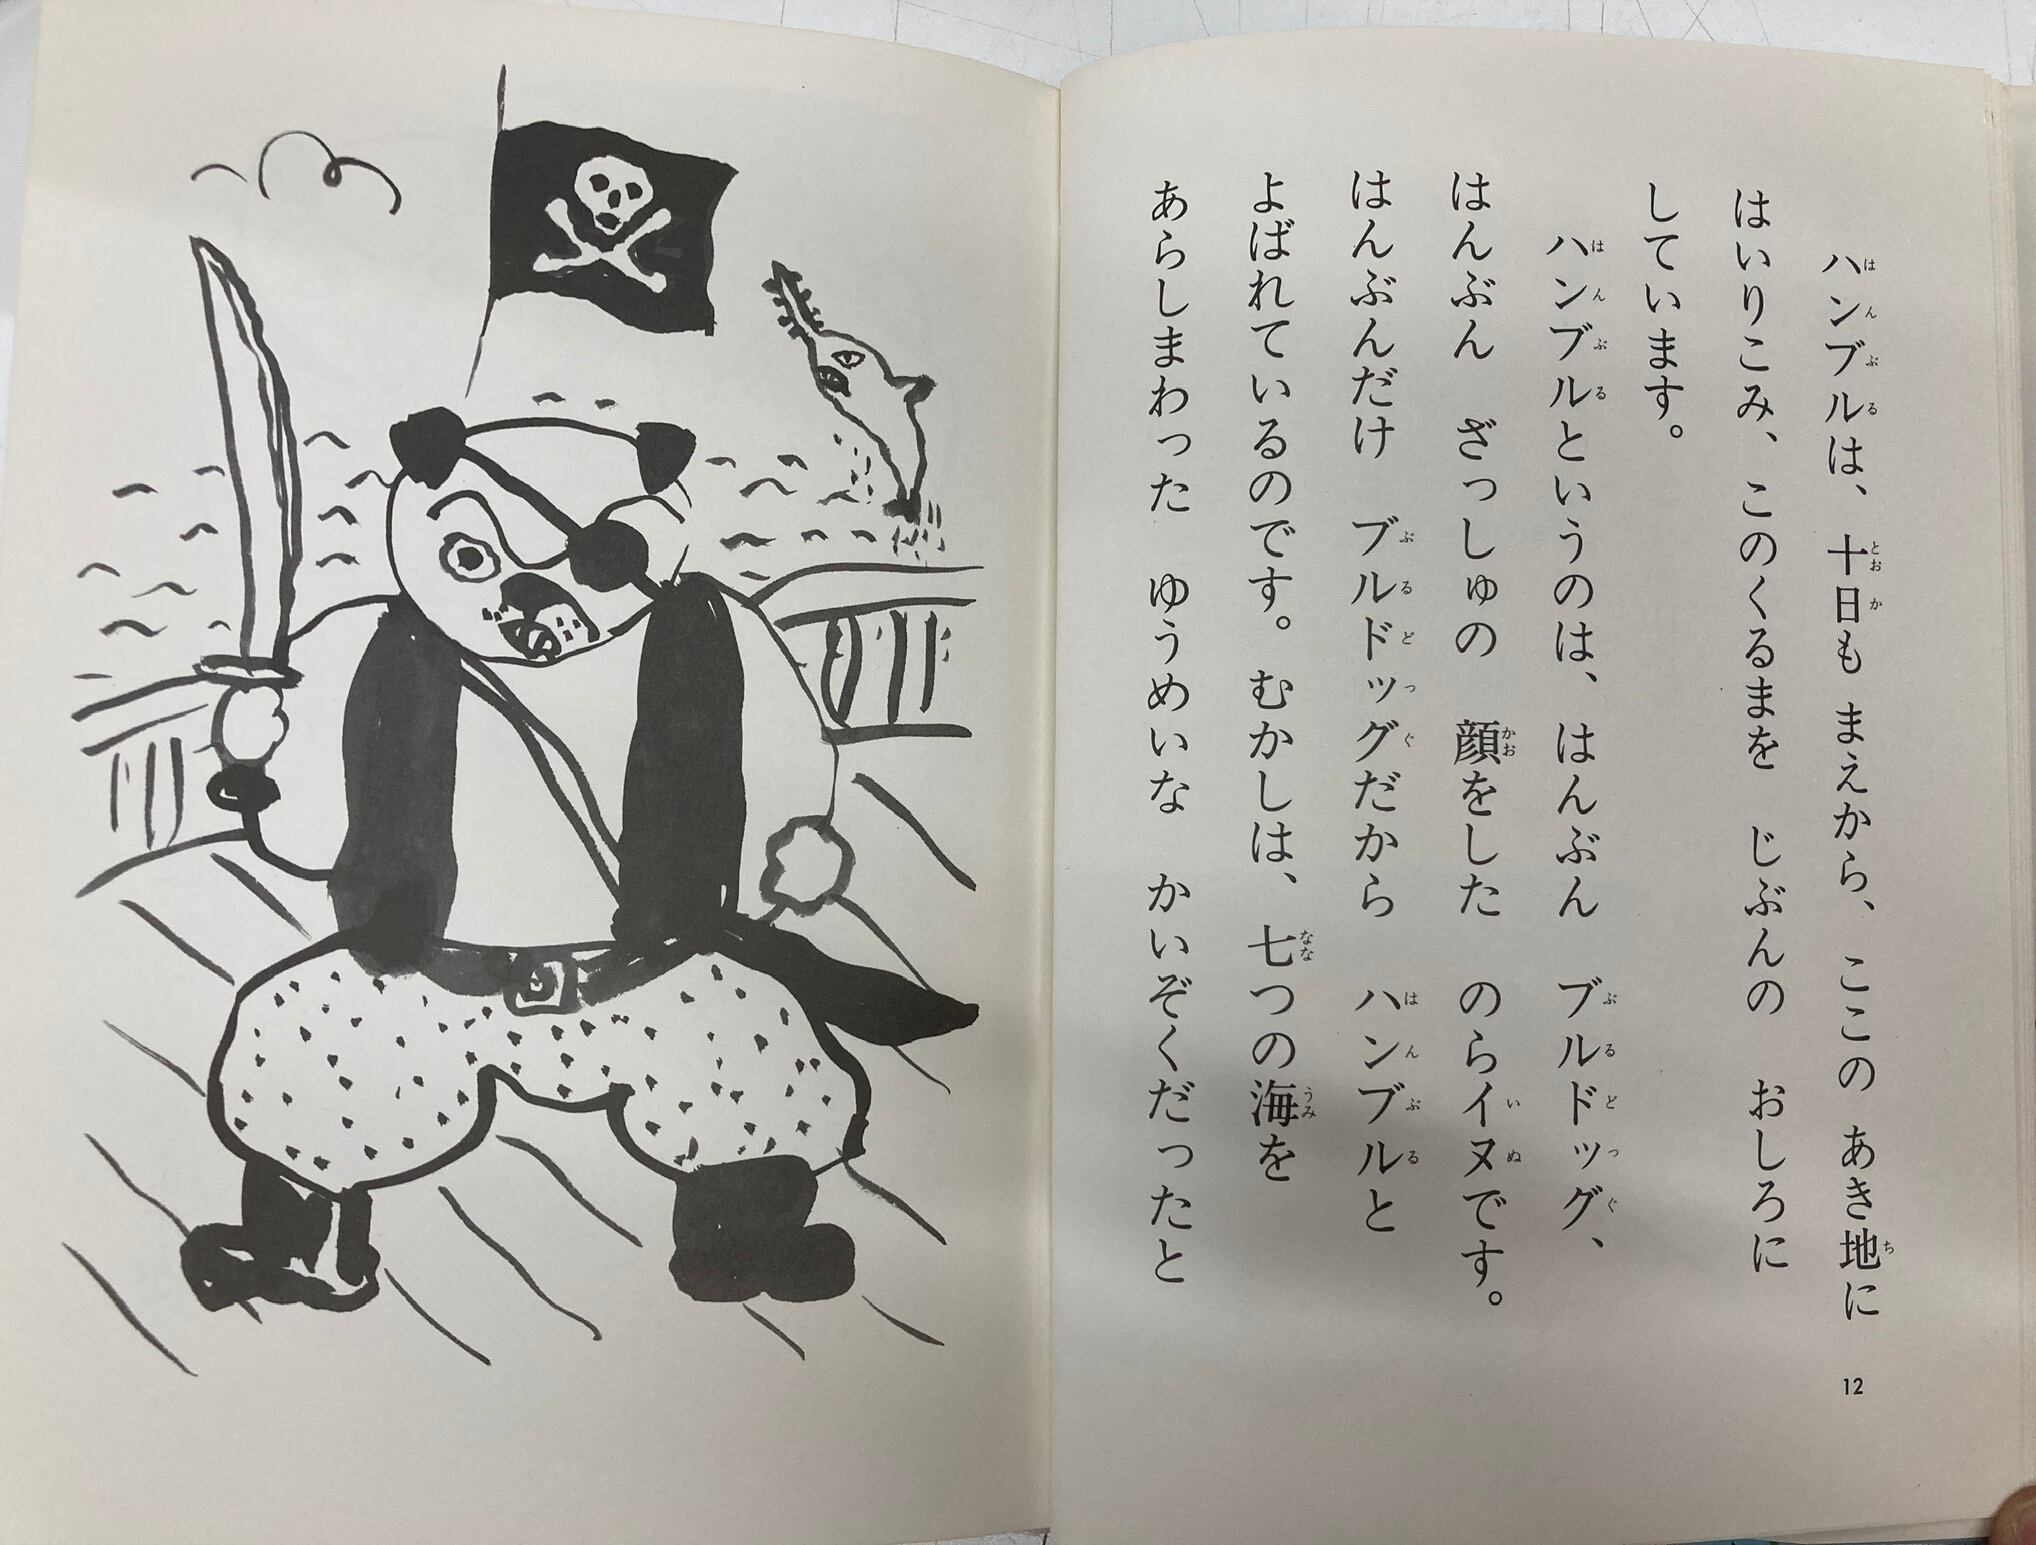 ハンブルは、十日も まえから、ここの あき地に
はいりこみ、このくるまを じぶんの おしろに
しています。
ハンブルというのは、はんぶん ブルドッグ、
はんぶん ざっしゅの 顔をした のらイヌです。
はんぶんだけ ブルドッグだから ハンブルと
よばれているのです。むかしは、七つの海を
あらしまわった ゆうめいな かいぞくだったと
12